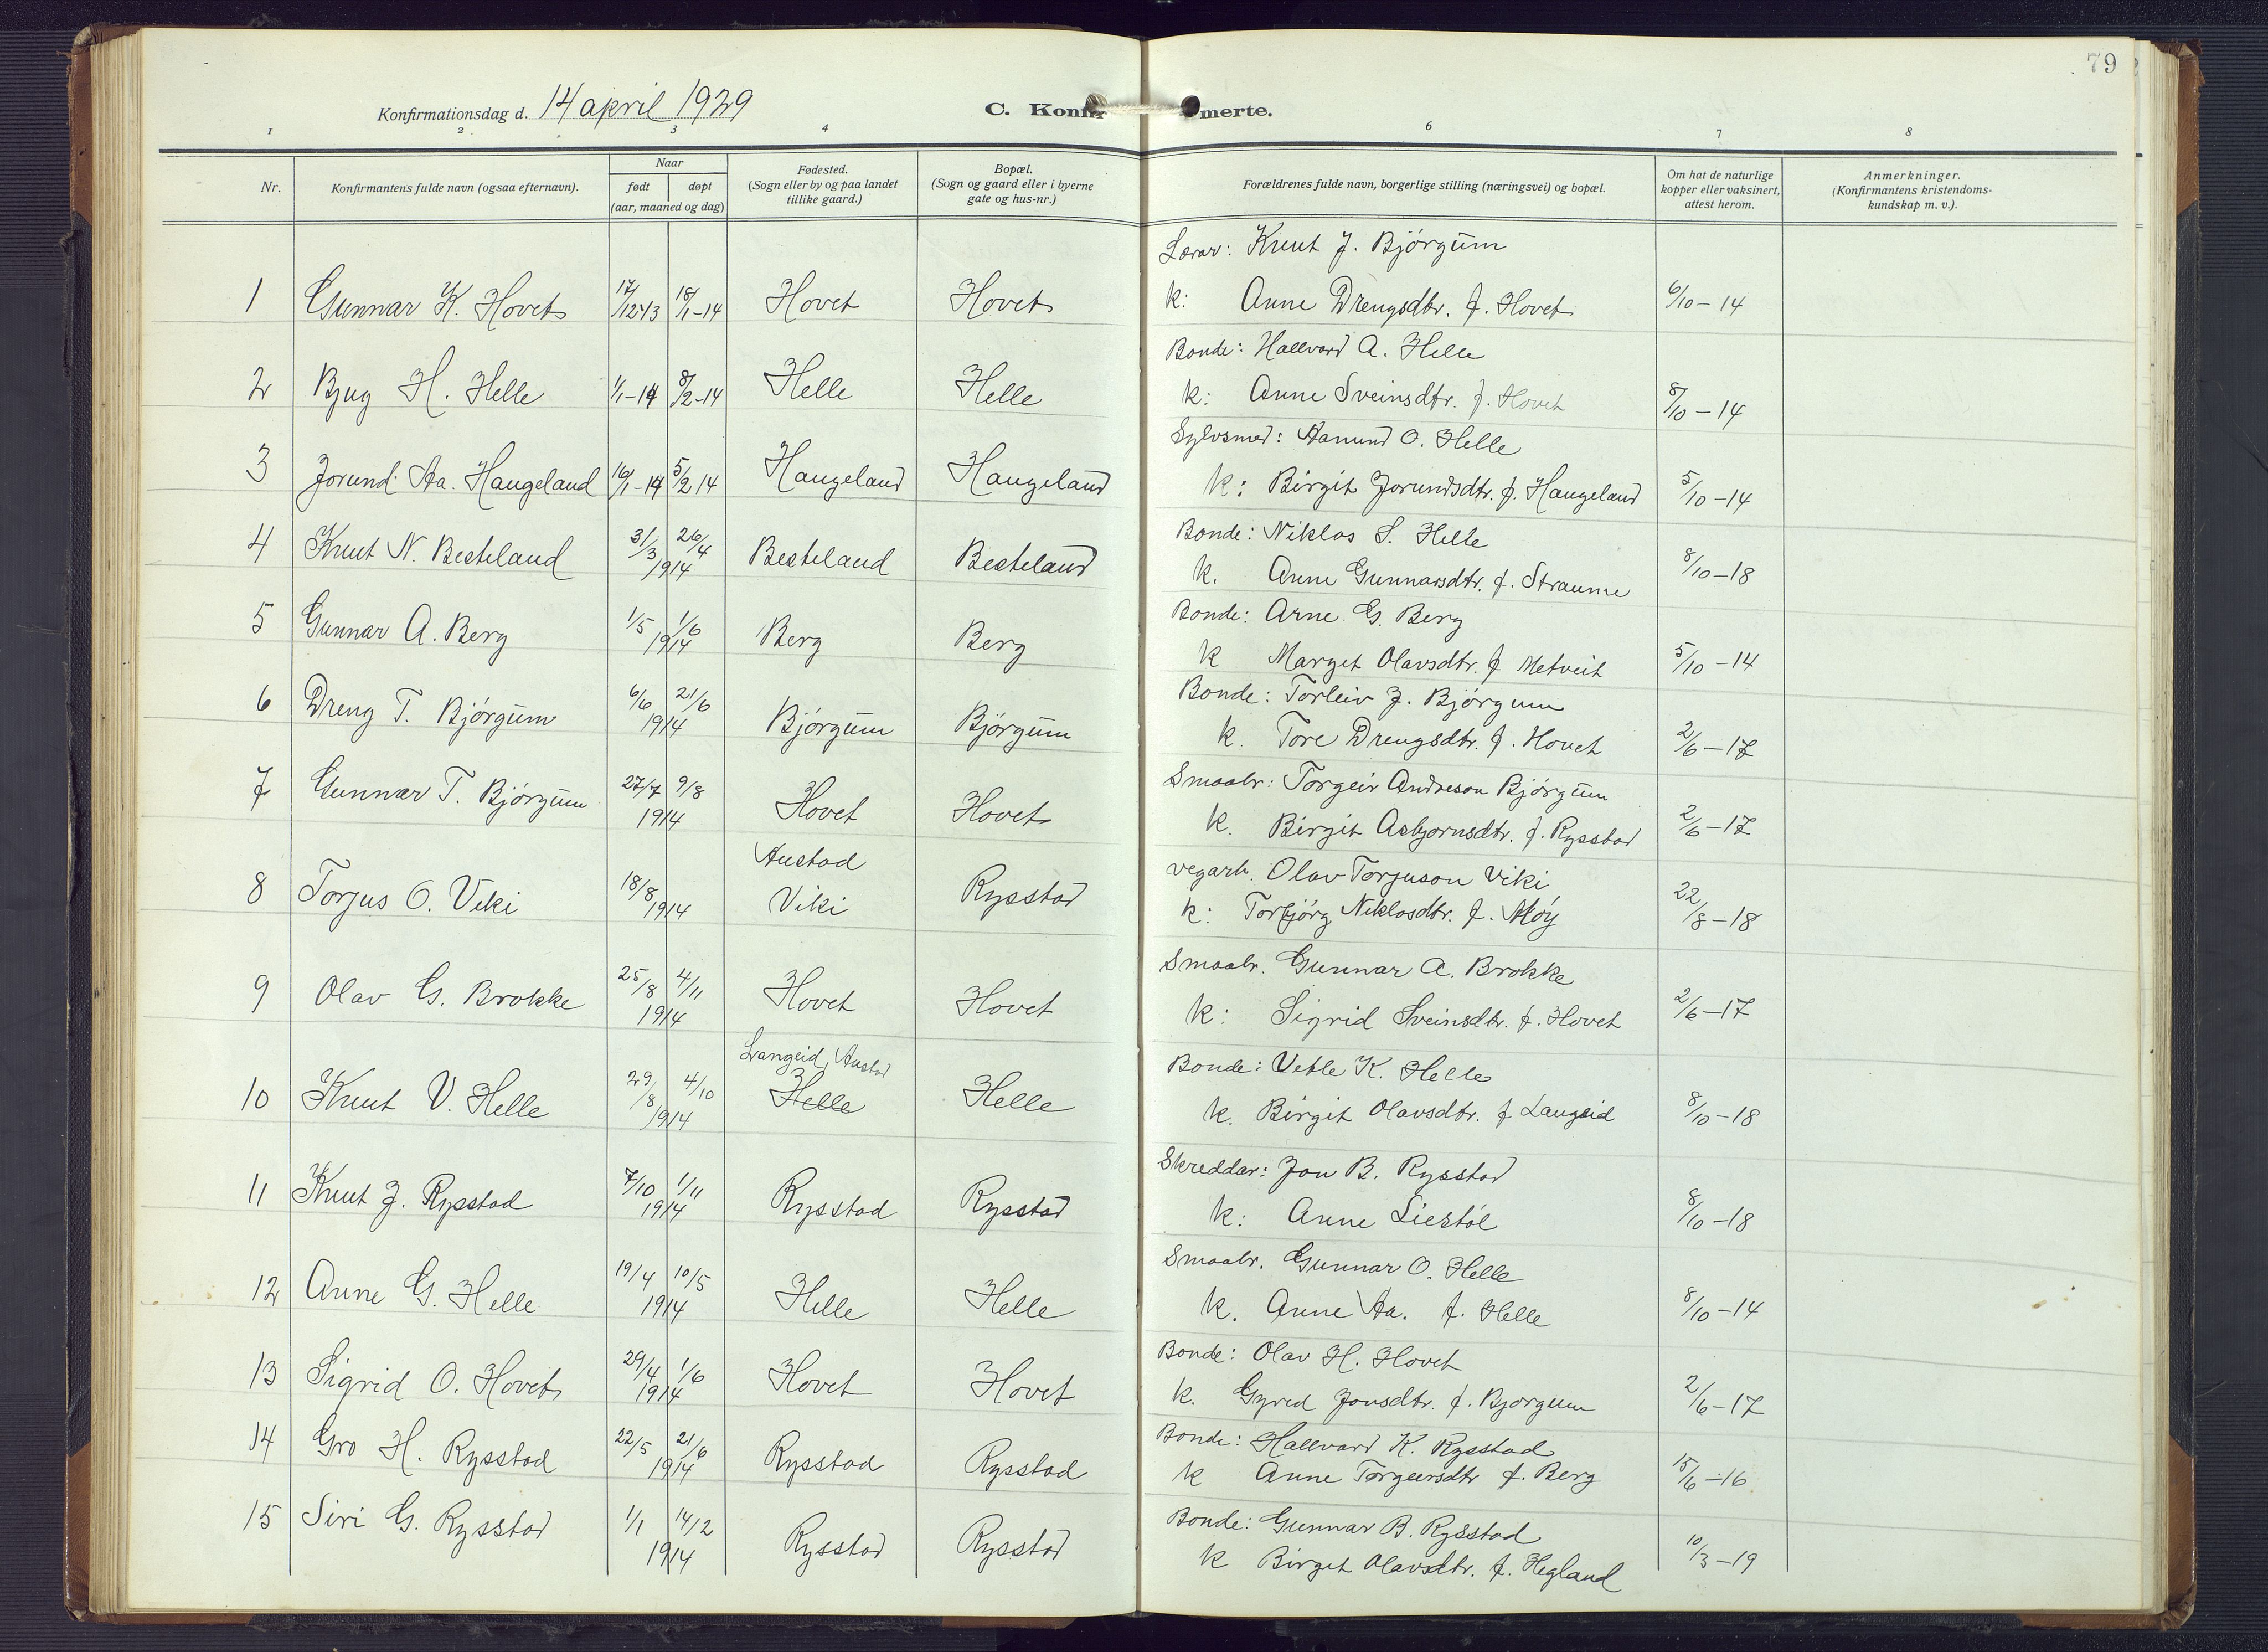 79
Konfirmationsdag d. 14 april 1929
C. Konfir merte.
1 2 3 4 6 7 8
Nr.
Konfirmantens fulde navn (ogsaa efternavn).
Naar
født døpt
(aar, maaned og dag)
Fødested.
(Sogn eller by og paa landet
tillike gaard.)
Bopæl.
(Sogn og gaard eller i byerne
gate og hus-nr.)
Forældrenes fulde navn, borgerlige stilling (næringsvei) og bopæl.
Om hat de naturlige
kopper eller vaksinert,
attest herom.
Anmerkninger.
(Konfirmantens kristendoms-
kundskap m. v.).
Lærar: Knut J. Bjórgum
1 Gunnar K. Hovet 17/12-13 18/1-14 Hovet Hovet k: Anne Drengsdtr. f. Hovet 6/10-14
Bonde: Hallvard A. Helle
2 Bjug H. Helle 1/1-14 8/2-14 Helle Helle k: Anne Sveinsdtr. f. Hovet 8/10-14
Sylvsmed: Aamund O. Helle
3 Jorund Aa. Haugeland 16/1-14 5/2 14 Haugeland Haugeland k: Birgit Jorundsdtr. f. Haugeland 5/10-14
Bonde: Niklos S. Helle
4 Knut N. Besteland 31/3 26/4 1914 Besteland Besteland k. Anne Gunnarsdtr. f. Straume 8/10-18
Bonde: Arne G. Berg
5 Gunnar A. Berg 1/5 1/6 1914 Berg Berg k Margit Olavsdtr. f Metveit 5/10-14
Bonde: Torleiv J. Bjórgum
6 Dreng T. Bjórgum 6/6 21/6 1914 Bjórgum Bjórgum k. Tore Drengsdtr. f. Hovet 2/6-17
Smaabr: Torgeir Andreson Bjórgum
7 Gunnar T. Bjórgum 27/7 9/8 1914 Hovet Hovet k. Birgit Asbjornsdtr. f. Rysstad 2/6-17
Austad
vegarb. Olav Torjuson Viki
8 Torjus O. Viki 18/8 1914 Viki Rysstad k: Torbjórg Niklosdtr. f. Móy 22/8-18
Smaabr. Gunnar A. Brokke
9 Olav G. Brokke 25/8 4/11 1914 Hovet Hovet k: Sigrid Sveinsdtr. f. Hovet 2/6-17
Langeid, Austad
Bonde: Vetle K. Helle
10 Knut V. Helle 29/8 4/10 1914 Helle Helle k. Birgit Olavsdtr. f Langeid 8/10-18
Skreddar: Jon B. Rysstad
11 Knut J. Rysstad 7/10 1/11 1914 Rysstad Rysstad k: Anne Liestól 8/10-18
Smaabr. Gunnar O. Helle
12 Anne G. Helle 19/4 10/5 1914 Helle Helle k. Anne Aa. f. Helle 8/10-14
Bonde: Olav H. Hovet
13 Sigrid O. Hovet 29/4 1/6 1914 Hovet Hovet k. Gyred Jonsdtr. f. Bjorgum 2/6-17
Bonde: Hallvard K. Rysstad
14 Gro H. Rysstad 22/5 21/6 1914 Rysstad Rysstad k Anne Torgeirsdtr f. Berg 15/6-16
Bonde: Gunnar B. Rysstad
15 Siri G. Rysstad 1/1 14/2 1914 Rysstad Rysstad k Birgit Olavsdtr. f. Hegland 10/3-19